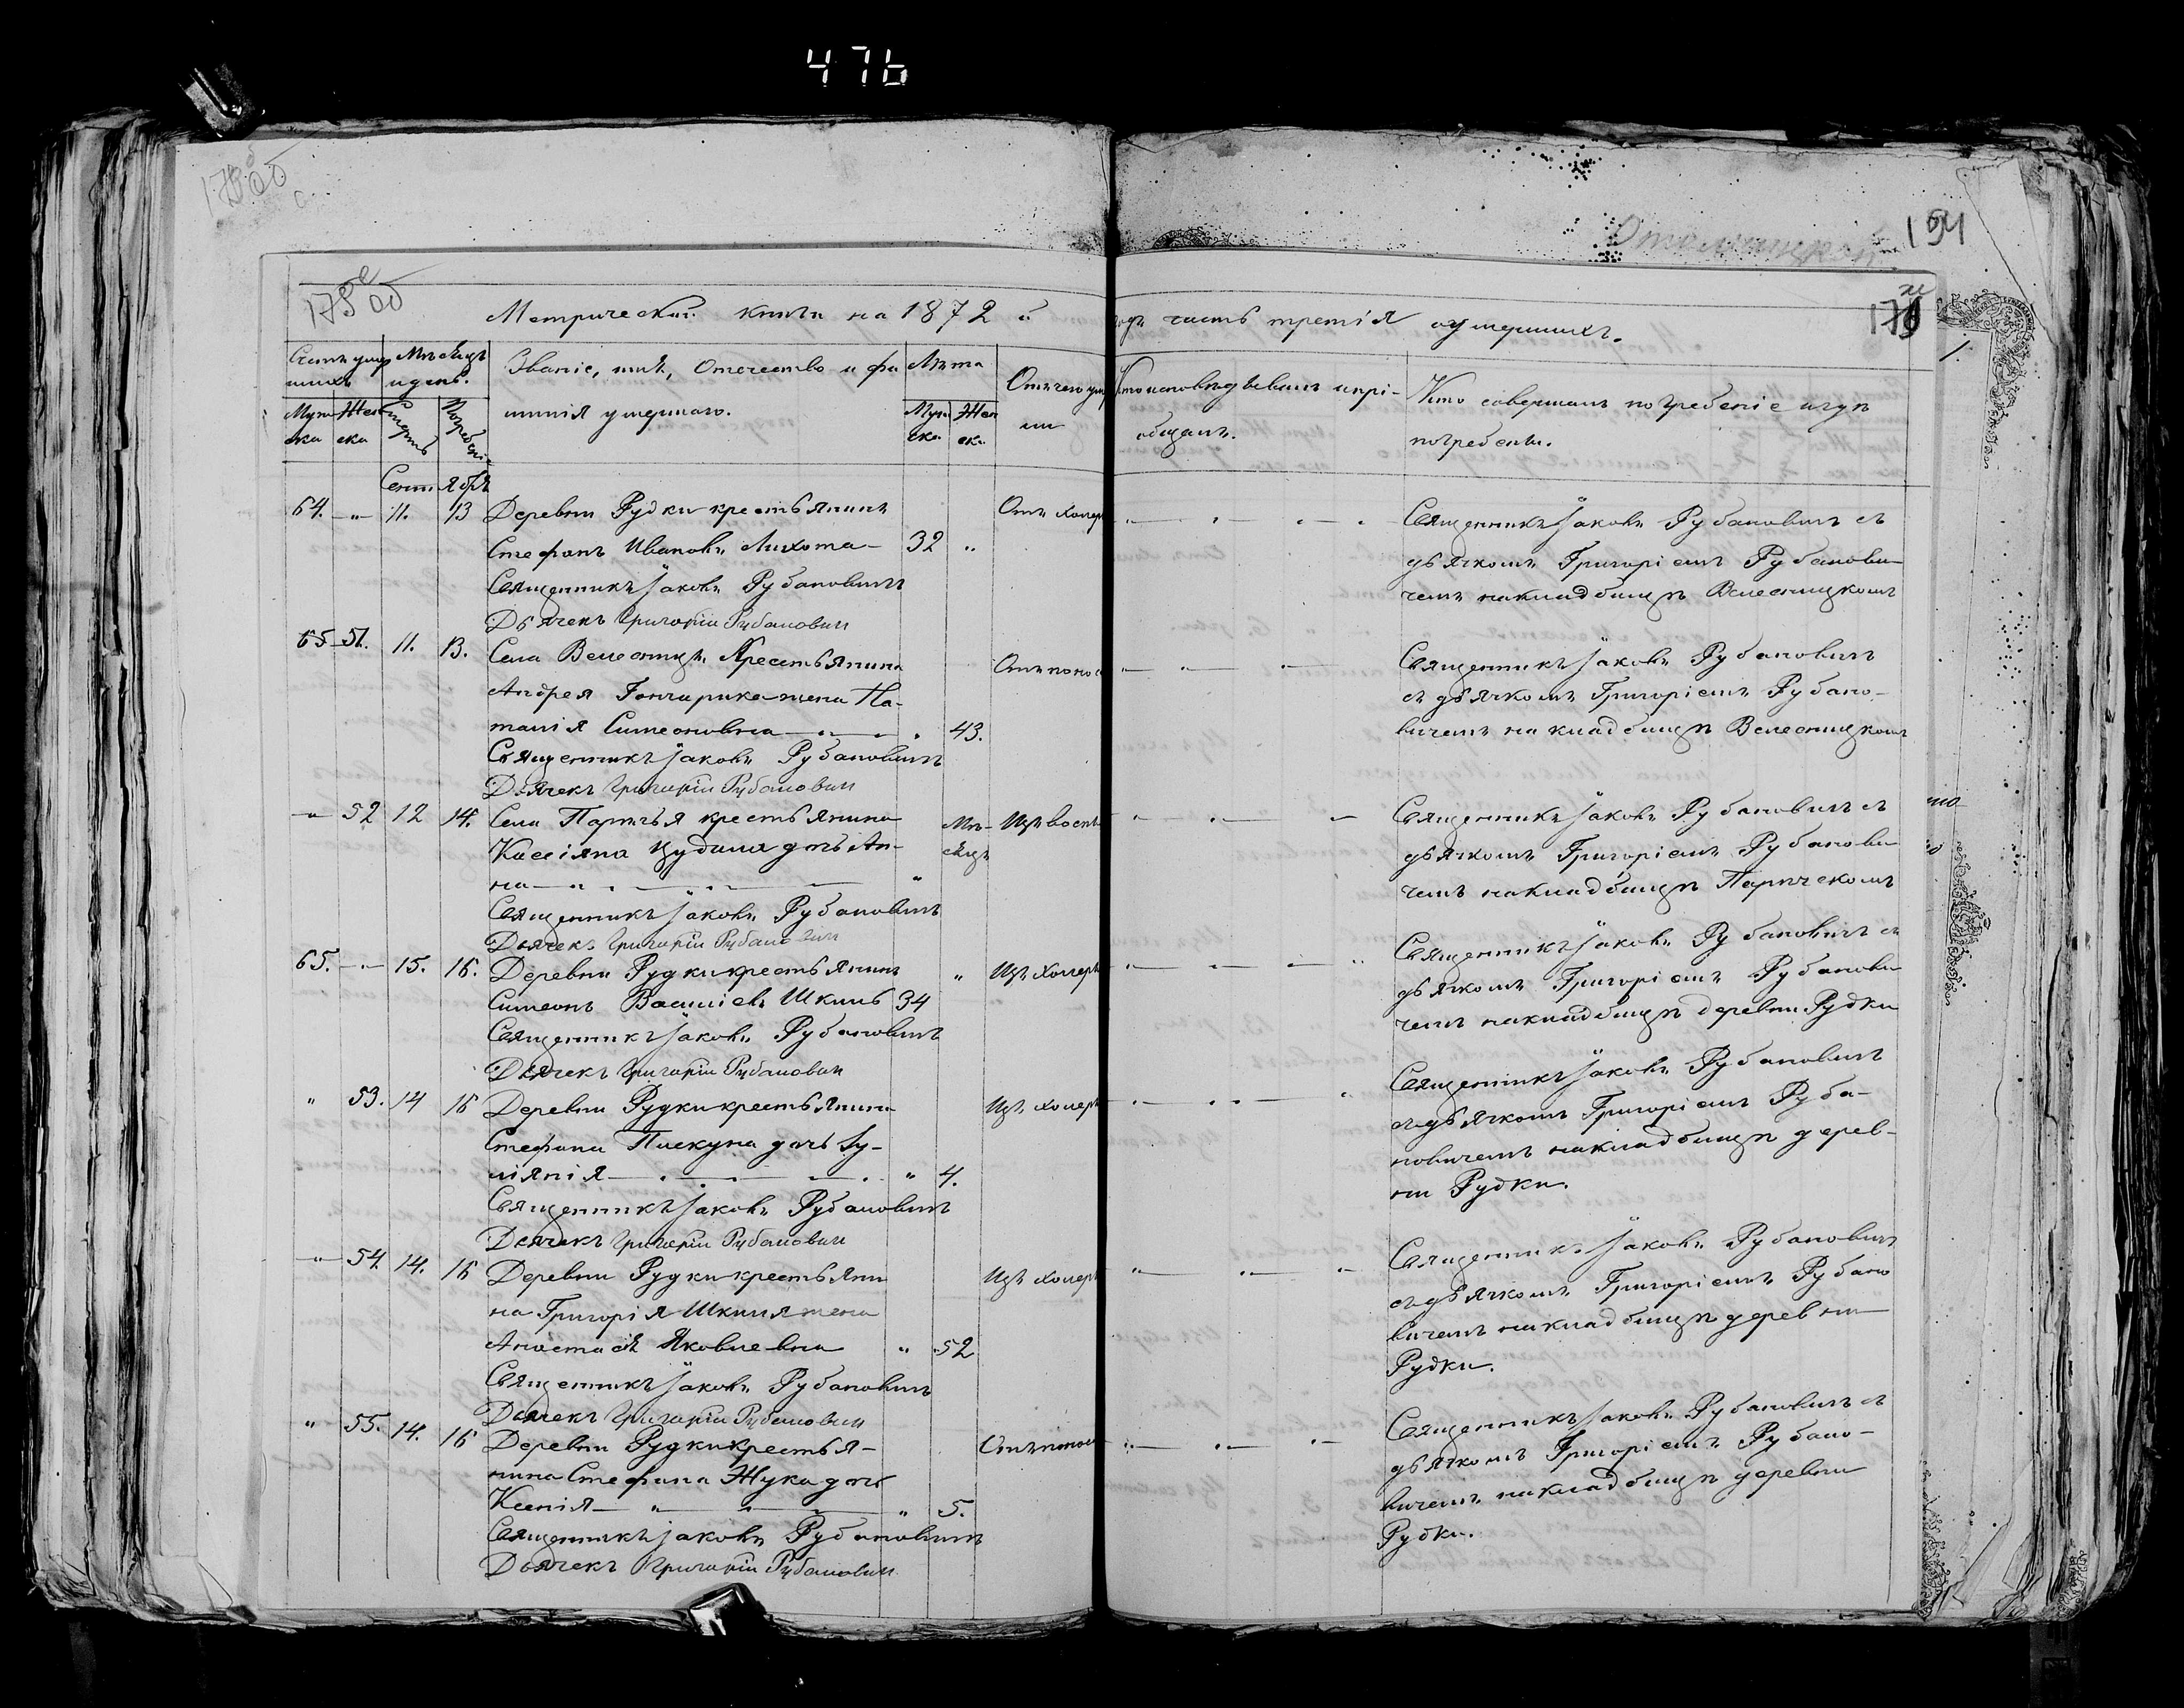 476
175 об
Отолчицкой
194
178 об
Метрической книги на 1872 й
годъ часть третія о умершихъ.
Счетъ умер
шихъ
Мѣсяцъ
и день.
Званіе, имя, Отечество и фа
милія умершаго.
Лѣта
Отъ чего умер
Кто исповѣдывалъ и прі-
общалъ.
Кто совершалъ погребеніе и гдѣ
погребены.
Муж
ска
Жен
ска
Смерть
Погребені
Муж
ска
Жен
ска
Сентября
64. — „ 11. 13 Деревни Рудки крестьянинъ Отъ холер
Стефанъ Ивановъ Лихота — 32 „
Священникъ Іаковъ Рубановичъ
Дьячекъ Григорій Рубанович
Священникъ Іаковъ Рубановичъ съ
дьячкомъ Григоріемъ Рубанови
чемъ на кладбищѣ Велесницкомъ
65 51. 11. 13. Села Велесницы Крестьянина Отъ понос
Андрея Гончарика жена На-
талія Симеоновна — „ — „ 43.
Священникъ Іаковъ Рубановичъ
Дьячекъ Григорій Рубанович
Священникъ Іаковъ Рубановичъ
съ дьячкомъ Григоріемъ Рубано-
вичемъ на кладбищѣ Велесницкомъ
„ 52 12 14. Села Парѣчья крестьянина Мѣ- Изъ воспы
Кассіяна Цубила дочь Ан- сяцъ
на — „ — „ — „
Священникъ Іаковъ Рубановичъ
Дьячекъ Григорій Рубанович
Священникъ Іаковъ Рубановичъ съ
дьячкомъ Григоріемъ Рубанови
чемъ на кладбищѣ Парѣческомъ
65. — „ 15. 16. Деревни Рудки крестьянинъ „ Изъ холеры
Симеонъ Василіевъ Шкиль 34
Священникъ Іаковъ Рубановичъ
Дьячекъ Григорій Рубанович
Священникъ Іаковъ Рубановичъ съ
дьячкомъ Григоріемъ Рубанови
чемъ на кладбищѣ деревни Рудки
„ 53. 14 16 Деревни Рудки крестьянина Изъ холеры
Стефана Пискуна дочь Іу-
ліянія — „ — „ 4.
Священникъ Іаковъ Рубановичъ
Дьячекъ Григорій Рубанович
Священникъ Іаковъ Рубановичъ
съ дьячкомъ Григоріемъ Руба-
новичемъ на кладбищѣ дерев-
ни Рудки.
„ 54. 14. 16 Деревни Рудки крестьяни Изъ холеры
на Григорія Шкиля жена
Анастасія Яковлевна „ 52
Священникъ Іаковъ Рубановичъ
Дьячекъ Григорій Рубанович
Священникъ Іаковъ Рубановичъ
съ дьячкомъ Григоріемъ Рубано
вичемъ на кладбищѣ деревни
Рудки.
„ 55. 14. 16 Деревни Рудки крестья- Отъ понос
нина Стефана Жука дочь
Ксенія — „ — „ 5.
Священникъ Іаковъ Рубановичъ
Дьячекъ Григорій Рубанович
Священникъ Іаковъ Рубановичъ съ
дьячкомъ Григоріемъ Рубано-
вичемъ на кладбищѣ деревни
Рудки.